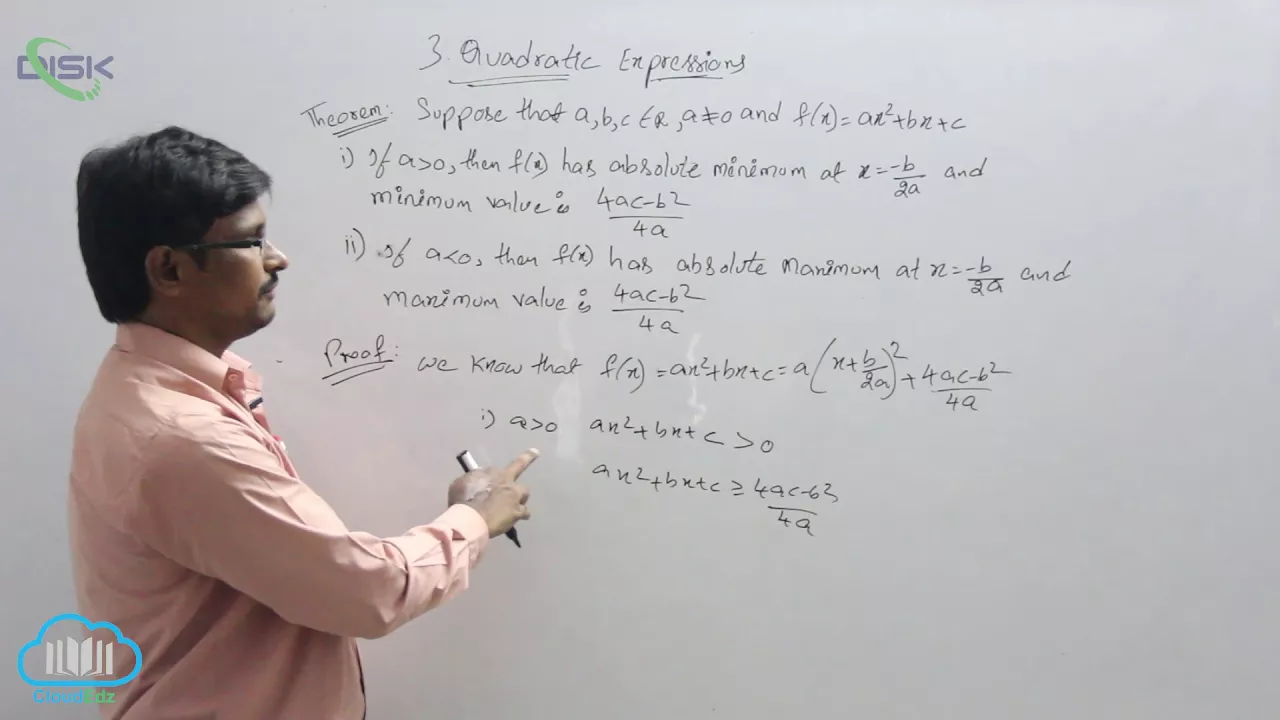 DISK
3. Quadratic Expressions
Theorem: Suppose that a, b, c ∈ R, a ≠ 0 and f(x) = ax²+bx+c
i) If a>0, then f(x) has absolute minimum at x = -b/2a and
minimum value is 4ac-b²/4a
ii) If a<0, then f(x) has absolute maximum at x = -b/2a and
maximum value is 4ac-b²/4a
Proof: we know that f(x) = ax²+bx+c = a(x+b/2a)² + 4ac-b²/4a
i) a>0 ax²+bx+c > 0
ax²+bx+c ≥ 4ac-b²/4a
CloudEdz